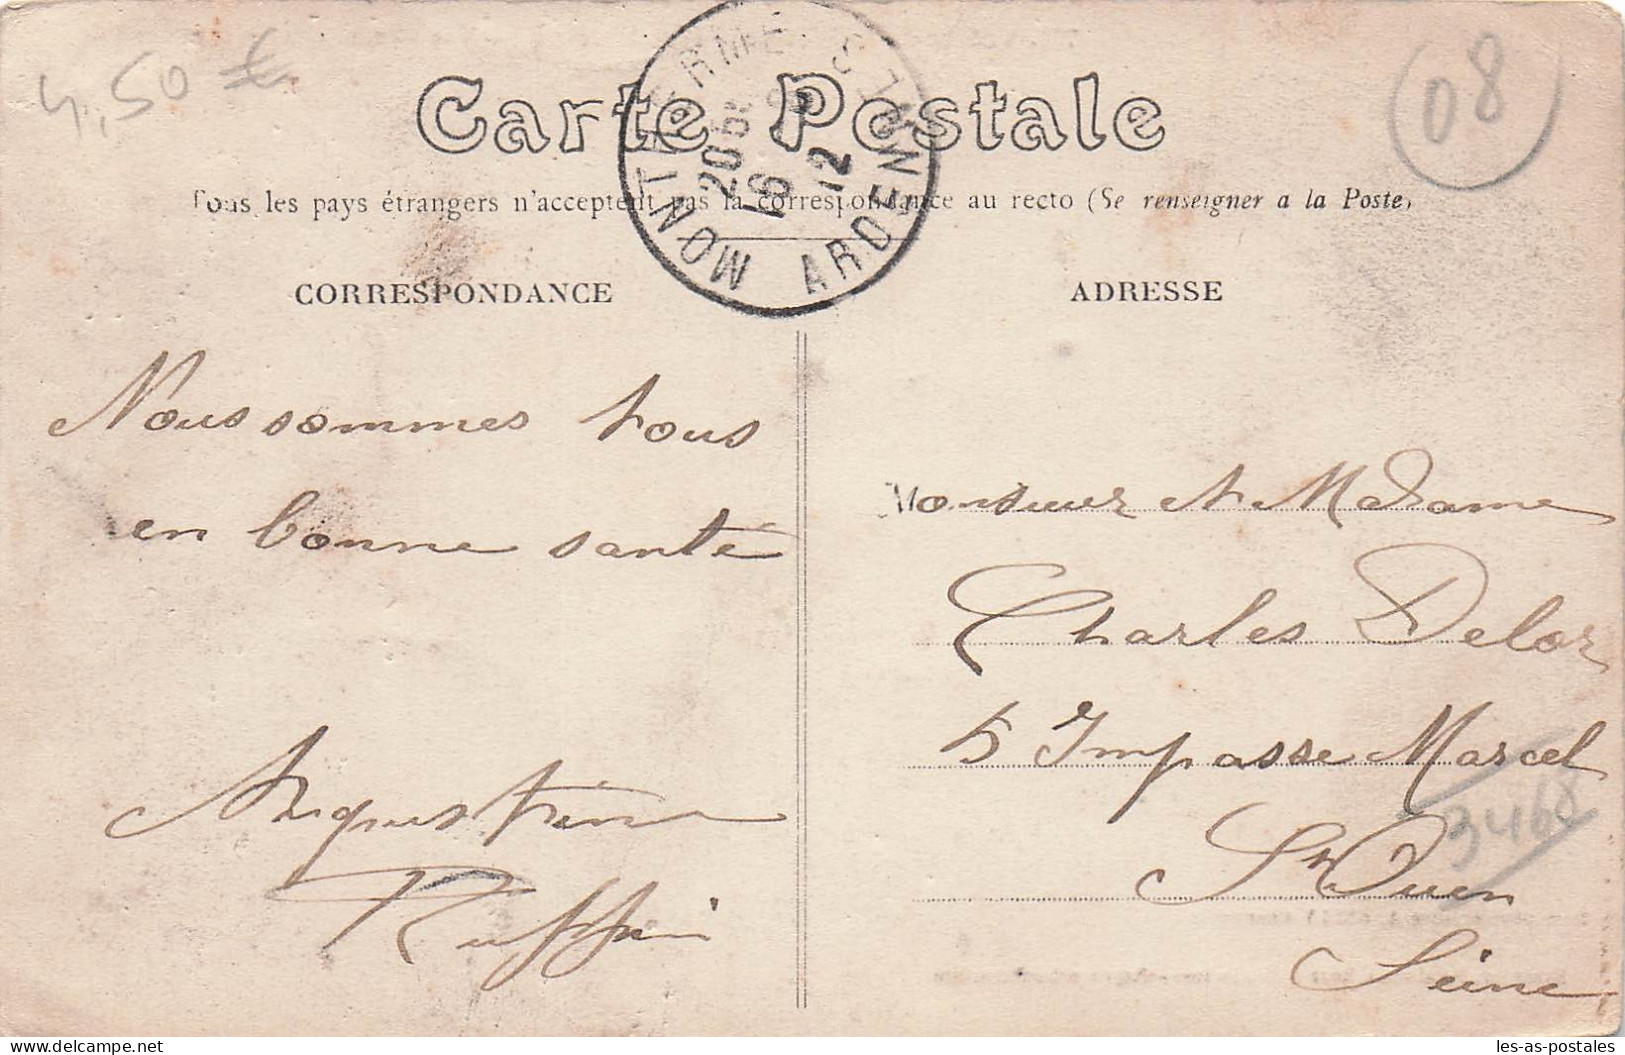 4,50 €
08
Carte Postale
MONTHERMÉ
ARDENNES
16
12
Tous les pays étrangers n'acceptent pas la correspondance au recto (Se renseigner a la Poste)
CORRESPONDANCE
ADRESSE
Nous sommes tous
en bonne santé
Augustine
Ruffin
Monsieur et Madame
Charles Delor
5 Impasse Marcel
3468
St Ouen
Seine
delcampe.net
les-as-postales